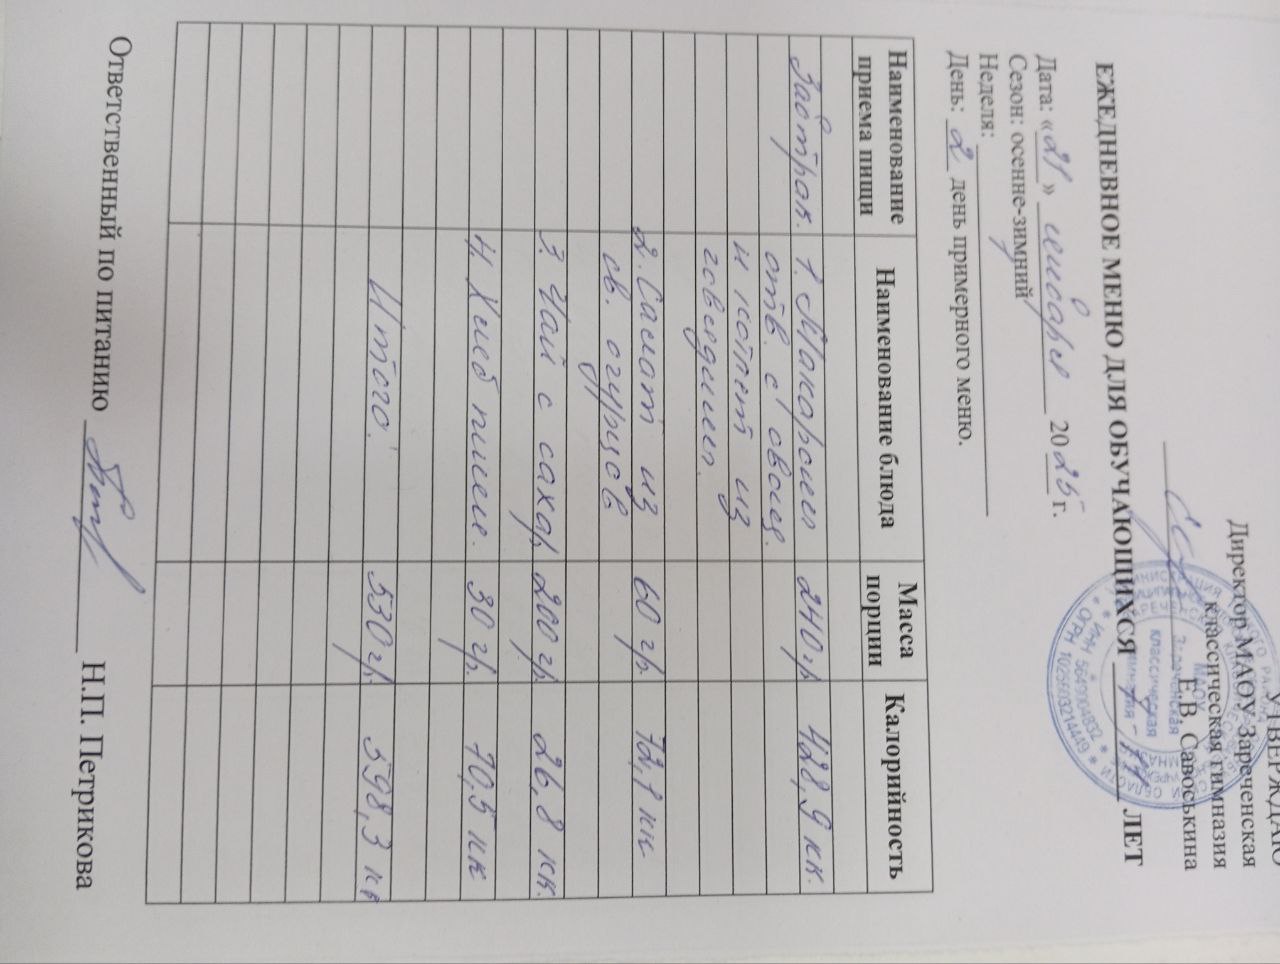 УТВЕРЖДАЮ
Директор МАОУ Зареченская
классическая гимназия
Е.В. Савоськина
ЕЖЕДНЕВНОЕ МЕНЮ ДЛЯ ОБУЧАЮЩИХСЯ ЛЕТ
Дата: «21» 2025 г.
Сезон: осенне-зимний
Неделя:
День: 2 день примерного меню.
Наименование приема пищи Наименование блюда Масса порции Калорийность
Завтрак. 1. Макароны 240 гр. 428,9 кк.
отв. с овощ.
и котлет из
говядины.
2. Салат из 60 гр. 72,1 кк
св. огурцов
3. Чай с сахар 200 гр. 26,8 кк.
4. Хлеб пшен. 30 гр. 70,5 кк
Итого: 530 гр. 598,3 кк
Ответственный по питанию Н.П. Петрикова
классическая
ИНН 5649004832 * ОГРН 1025603214449 *